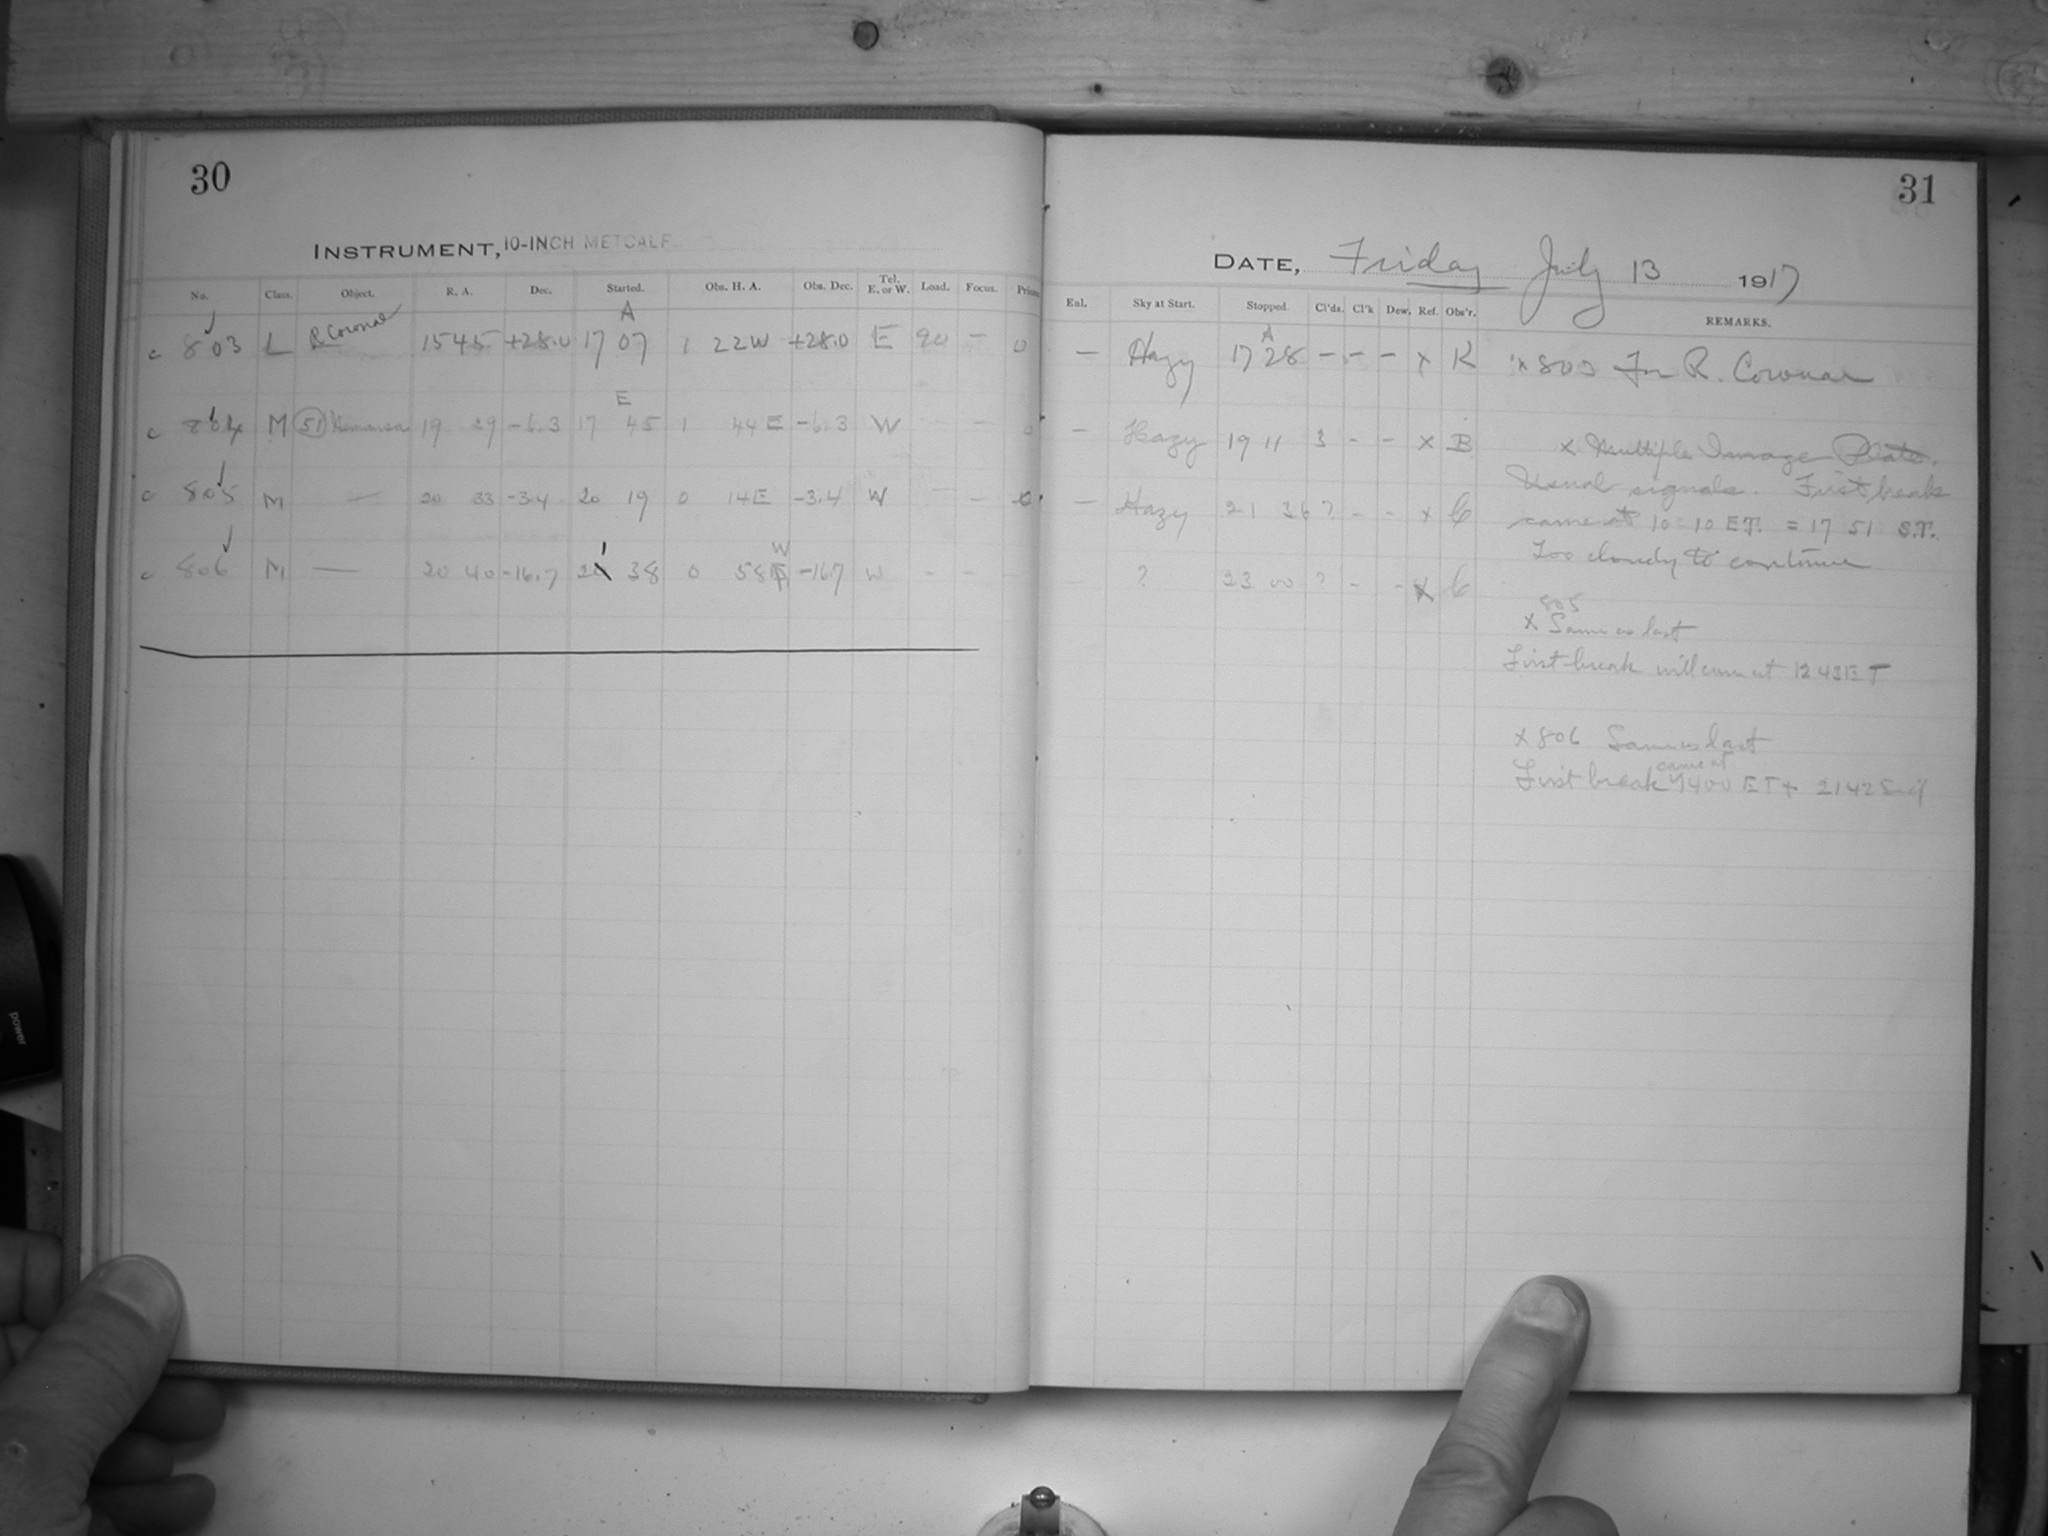 30
INSTRUMENT, 10-INCH METCALF
No. Class. Object. R. A. Dec. Started. Obs. H. A. Obs. Dec. Tel. E. or W. Load. Focus.
A
c 803 L R Coronae 15 45 +28.0 17 07 1 22W +28.0 E 90 - 0
E
c 804 M (51) Nemausa 19 29 -6.3 17 45 1 44E -6.3 W - - 0
c 805 M — 20 33 -3.4 20 19 0 14E -3.4 W - -
c 806 M — 20 40 -16.7 21 38 0 58W -16.7 W - - -
31
DATE, Friday July 13 1917
Enl. Sky at Start. Stopped. Cl'ds. Cl'k Dew. Ref. Obs'r. REMARKS.
A
— Hazy 17 28 - - - x K x 803 For R. Coronae
— Hazy 19 11 3 - - x B
— Hazy 21 36 ? - - x C
? 23 00 ? - - x C
x Multiple Image Plate.
Usual signals. First break
came at 10 10 E.T. = 17 51 S.T.
Too cloudy to continue
805
x Same as last
First break will come at 12 43 E T
x 806 Same as last
came at
First break 1400 ET + 2142 Sid
power